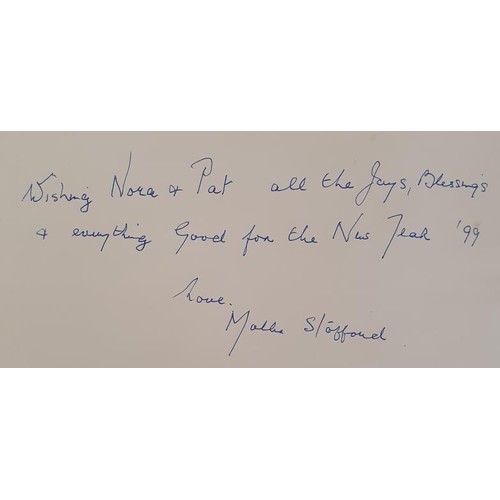 Wishing Nora & Pat all the Joys, Blessings
& everything Good for the New Year '99
Love.